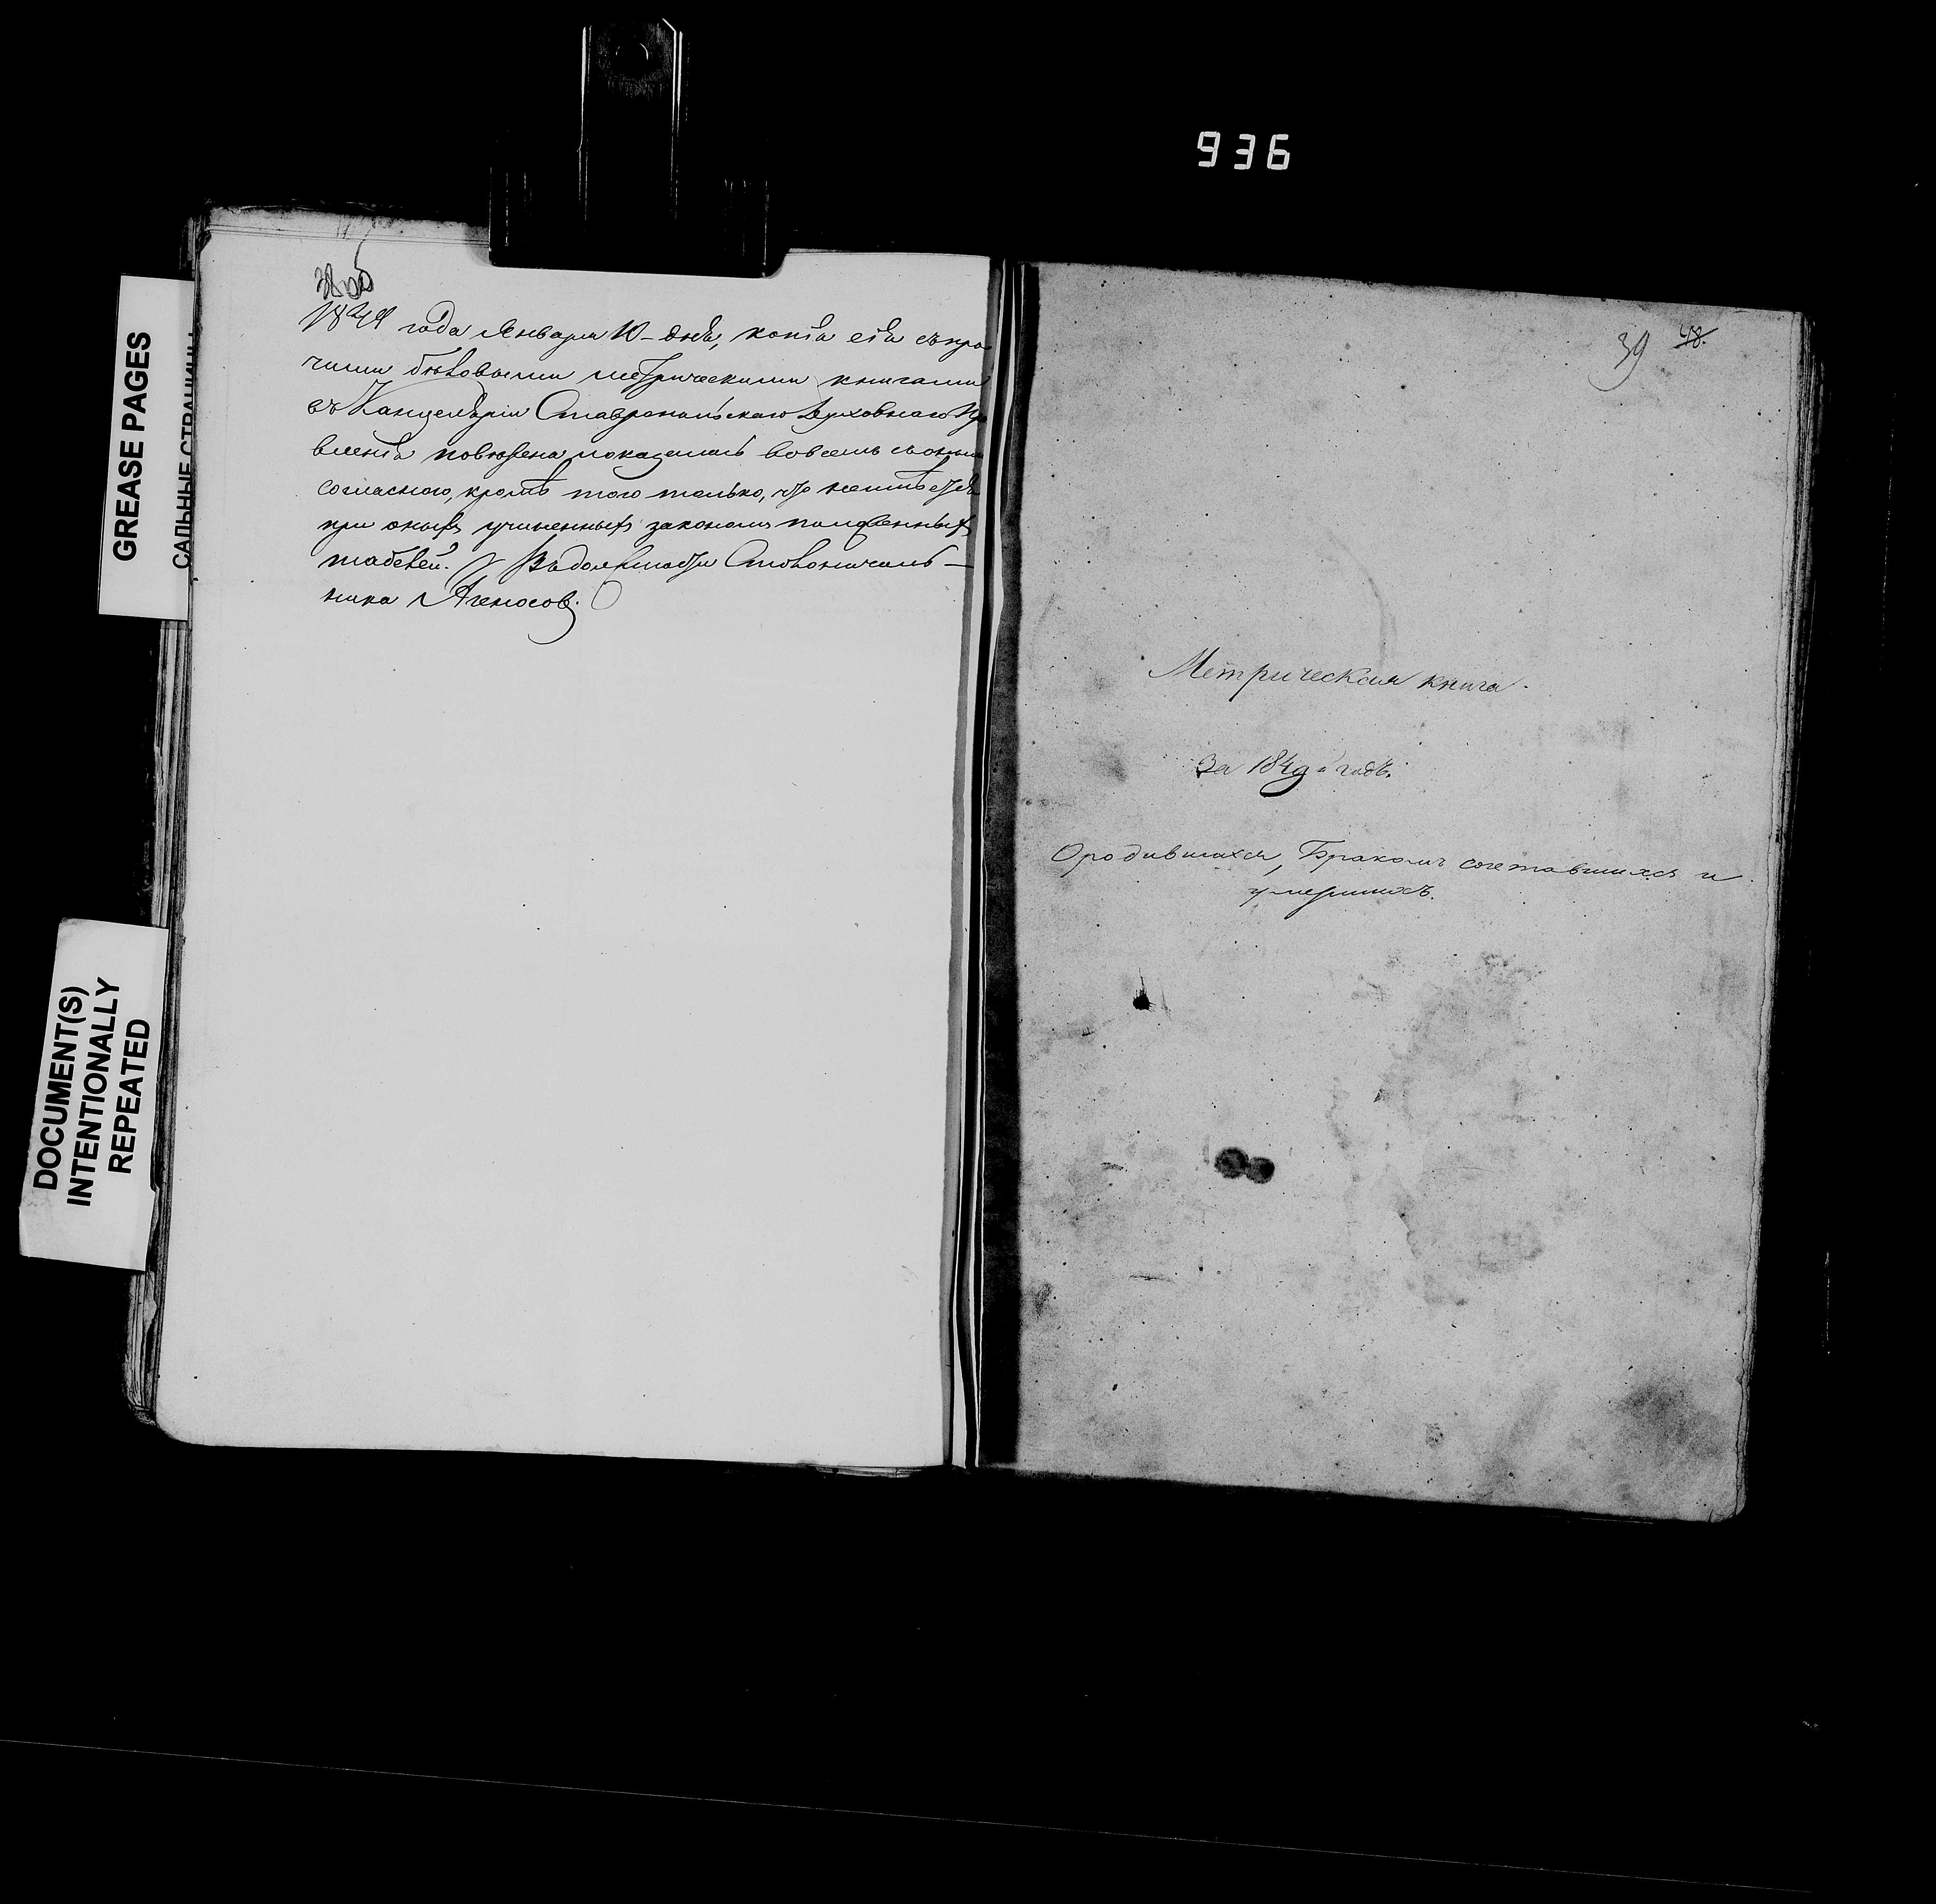 936
GREASE PAGES
САЛЬНЫЕ СТРАНИЦЫ
DOCUMENT(S)
INTENTIONALLY
REPEATED
года Января 10 - дня, копія сія съ про
чими метрическими книгами
въ Канцеляріи Ставропольскаго Духовнаго Пра
вленія повѣрена и оказалась во всемъ съ оными
согласною, кромѣ того только, что
при оныхъ учиненныхъ закономъ положенныхъ
табелей. Въ должности Столоначаль-
ника
39 48.
Метрическая книга.
За 1849й годъ.
О родившихся, Бракомъ сочетавшихся и
умершихъ.